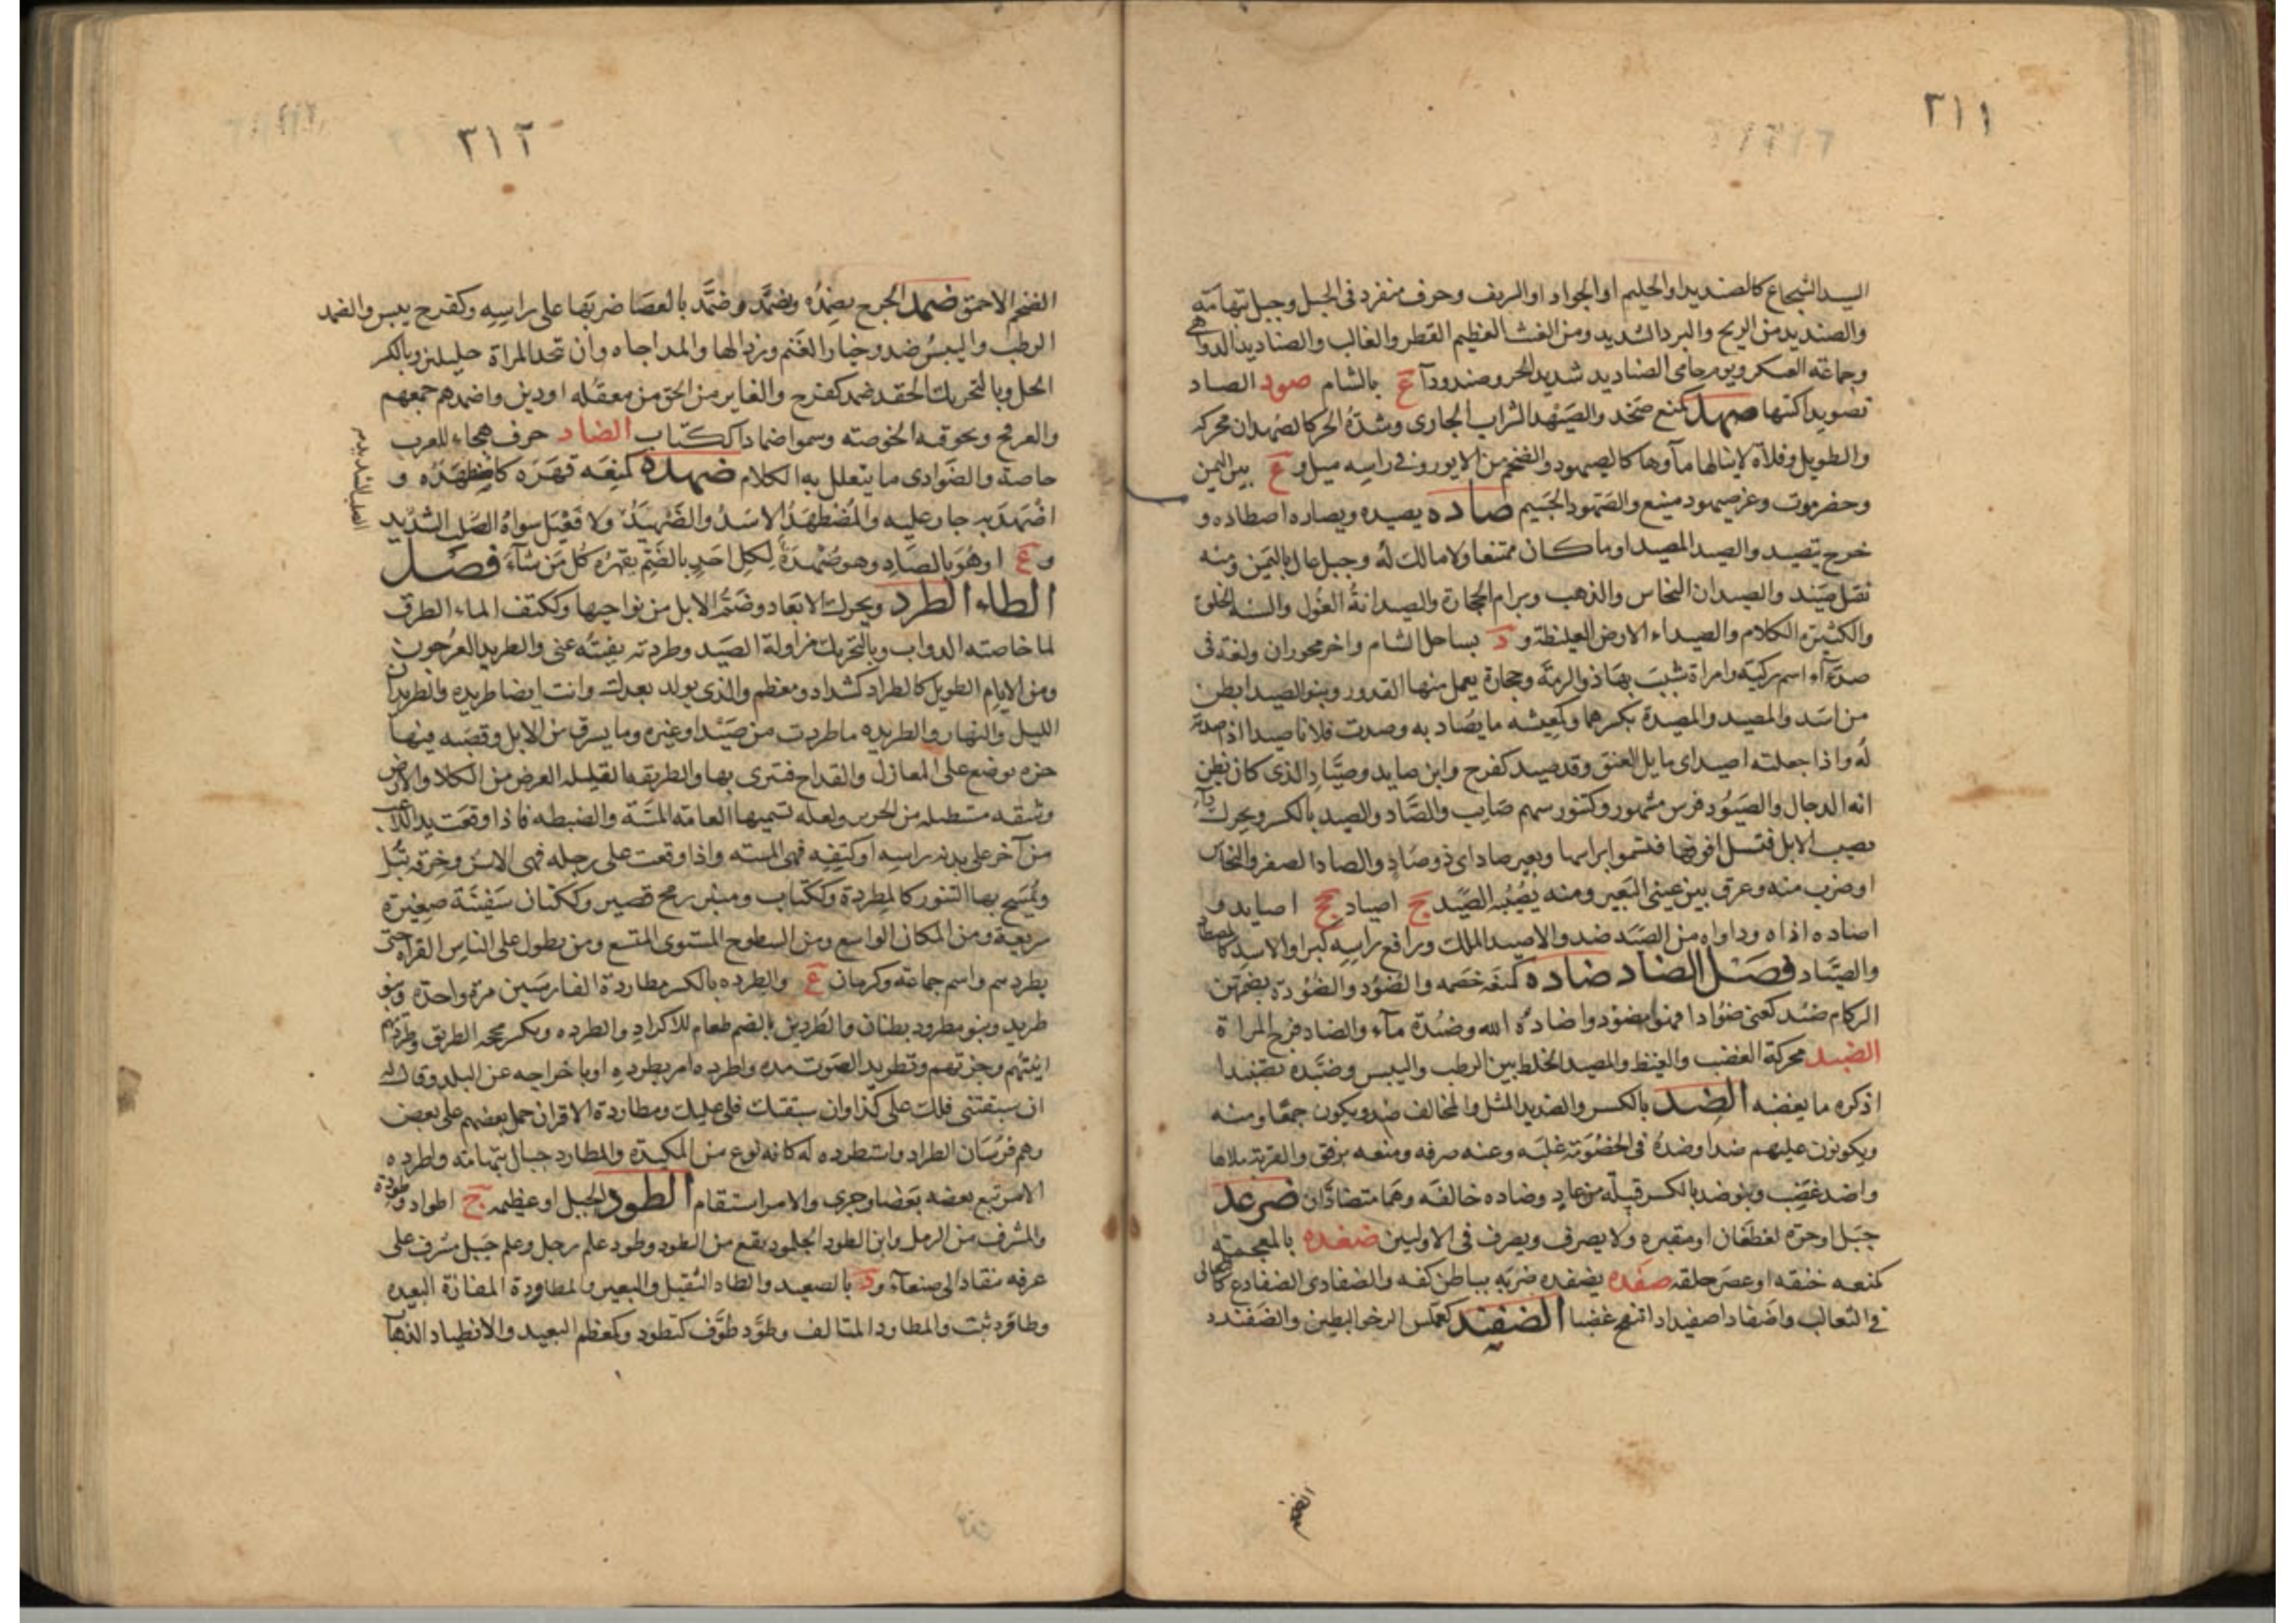 ٣١١
السيد الشجاع كالصنديد او الحليم او الجواد او الشريف وحرف منفرد فى الجبل وجبل بتهامه
والصنديد من الريح والبرد الشديد ومن الغيث العظيم القطر والغالب والصناديد الدواهى
وجماعة العسكر ويوم حامى الصناديد شديد الحر وصندودآ ع بالشام صود الصاد
تصويدا كتبها صهد كمنع صخد والصيهد السراب الجارى وشدة الحر كالصهدان محركه
والطويل وفلاة لا ينالها مآوها كالصيهود والضخم من الايور وفى راسه ميل و ع بين اليمن
وحضرموت وعز صيهود منيع والصهود الجسيم صاده يصيده ويصاده اصطاده و
خرج يتصيد والصيد المصيد او ما كان ممتنعا ولا مالك له وجبل عال باليمن ومنه
نقيل صيد والصيدان النحاس والذهب وبرام الحجارة والصيدانة الغول والسيئة الخلق
والكثيرة الكلام والصيداء الارض الغليظة و د بساحل الشام واخر بحوران ولغة فى
صدآء اسم ركية وامراة شبب بها ذو الرمة وحجارة يعمل منها القدور وبنو الصيدا بطن
من اسد والمصيد والمصيدة بكسرهما وكمعيشه ما يصاد به وصدت فلانا صيدا اذا صدته
له واذا جعلته اصيد اى مايل العنق وقد صيد كفرح وابن صايد وصياد الذى كان يظن
انه الدجال والصيود فرس مشهور وكتنور سهم صايب والصاد والصيد بالكسر ويحرك داء
يصيب الابل فتسيل انوفها فتسموا براسها وبعير صاد اى ذو صاد والصاد الصفر والنحاس
او ضرب منه وعرق بين عينى البعير ومنه يصيبه الصيد ج اصياد جج اصايد و
اصاده اذاه وداواه من الصيد ضد والاصيد الملك ورافع راسه كبرا والاسد كالمصطاد
والصياد فصل الضاد ضاده كمنعه خصمه والضؤد والضؤدة بضمهن
الزكام ضئد كعنى ضؤادا فهو مضؤد واضاده الله وضئدة مآء والضاد فرج المراة
الضبد محركة الغضب والغيظ والمصيد الخلط بين الرطب واليبس وضبده تضبيدا
اذكره ما يغضبه الضد بالكسر والضديد المثل والمخالف ضد ويكون جمعا ومنه
ويكونون عليهم ضدا وضده فى الخصومة غلبه وعنه صرفه ومنعه برفق والقربة ملاها
واضد غضب وبنو ضد بالكسر قبيلة من عاد وضاده خالفه وهما متضادان ضرعد
جبل او حرة لغطفان او مقبره ولا يصرف ويصرف فى الاولين ضغده بالمعجمة
كمنعه خنقه او عصر حلقه ضفده يضفده ضربه بباطن كفه والضفادى الضفادع كالثعالى
فى الثعالب واضفاد اضفيدادا انتفخ غضبا الضفند كعملس الرخو البطين والضفندد
الضخم
٣١٢
الضخم الاحمق ضمد الجرح يضمده ويضمده وضمد بالعصا ضربها على راسه وكفرح يبس والضمد
الرطب واليبس ضد وخيار الغنم ورذالها والمداجاه وان تتخذ المراة خليلين وبالكسر
الخل وبالتحريك الحقد ضمد كفرح والغابر من الحق من معقله او دين واضمدهم جمعهم
والعرفج وتجوفه الخوصته وسموا ضمادا ككتاب الضاد حرف هجاء للعرب
خاصة والضوادى ما يتعلل به الكلام ضهده كمنعه قهره كاضطهده و
اضهد به جار عليه والمضطهد الاسد والضهيد ولا فعيل سواه الصلب الشديد
و ع او هو بالصاد وهو ضهدة لكل احد بالضم يقهره كل من شآء فصل
الطاء الطرد ويحرك الابعاد وضم الابل من نواحيها وككتف الماء الطرق
لما خاضته الدواب وبالتحريك مزاولة الصيد وطردته نفيته عنى والطريد العرجون
ومن الايام الطويل كالطراد كشداد ومعظم والذى يولد بعدك وانت ايضا طريده والطريدان
الليل والنهار والطريده ما طردت من صيد او غيره وما يسرق من الابل وقصبه فيها
حزه يوضع على المغازل والقداح فتبرى بها والطريقه القليله العرض من الكلا والارض
وشقه مستطيله من الحرير ولعبه تسميها العامه المسة والضبطه فاذا وقعت يد اللاعب
من آخر على بدنه راسه او كتفه فهى المسه واذا وقعت على رجله فهى الاسن وخرقه تبل
ويمسح بها التنور كالمطردة وككتاب ومنبر رمح قصير وككتان سفينة صغيرة
سريعة ومن المكان الواسع ومن السطوح المستوى المتسع ومن يطول على الناس القراه حتى
يطردهم واسم جماعة وكرمان ع والطرده بالكسر مطاردة الفارسين مرة واحده وبنو
طريد وبنو مطرود بطنان والطردين بالضم طعام للاكراد والطرده وبكسر محجه الطريق وطردتهم
اتيتهم وجزتهم وتطريد الصوت مده واطرده امر بطرده او باخراجه عن البلد وقال له
ان سبقتنى فلك على كذا وان سبقتك فلى عليك ومطاردة الاقران حمل بعضهم على بعض
وهم فرسان الطراد واستطرده له كانه نوع من المكيدة والمطارد جبال بتهامه واطرده
الامر تبع بعضه بعضا وجرى والامر استقام الطود الجبل او عظيمه ج اطواد وطودة
والمشرف من الرمل وابن الطود الجلمود يقع من الطود وطود علم رجل وعلم جبل مشرف على
عرفه ينقاد الى صنعاء و د بالصعيد والطاد الثقيل والبعير والمطاودة المفازة البعيده
وطاد ثبت والمطاود المتالف وطود طوف كتطود وكمعظم البعيد والانطياد الذهآ
الصلب الشديد